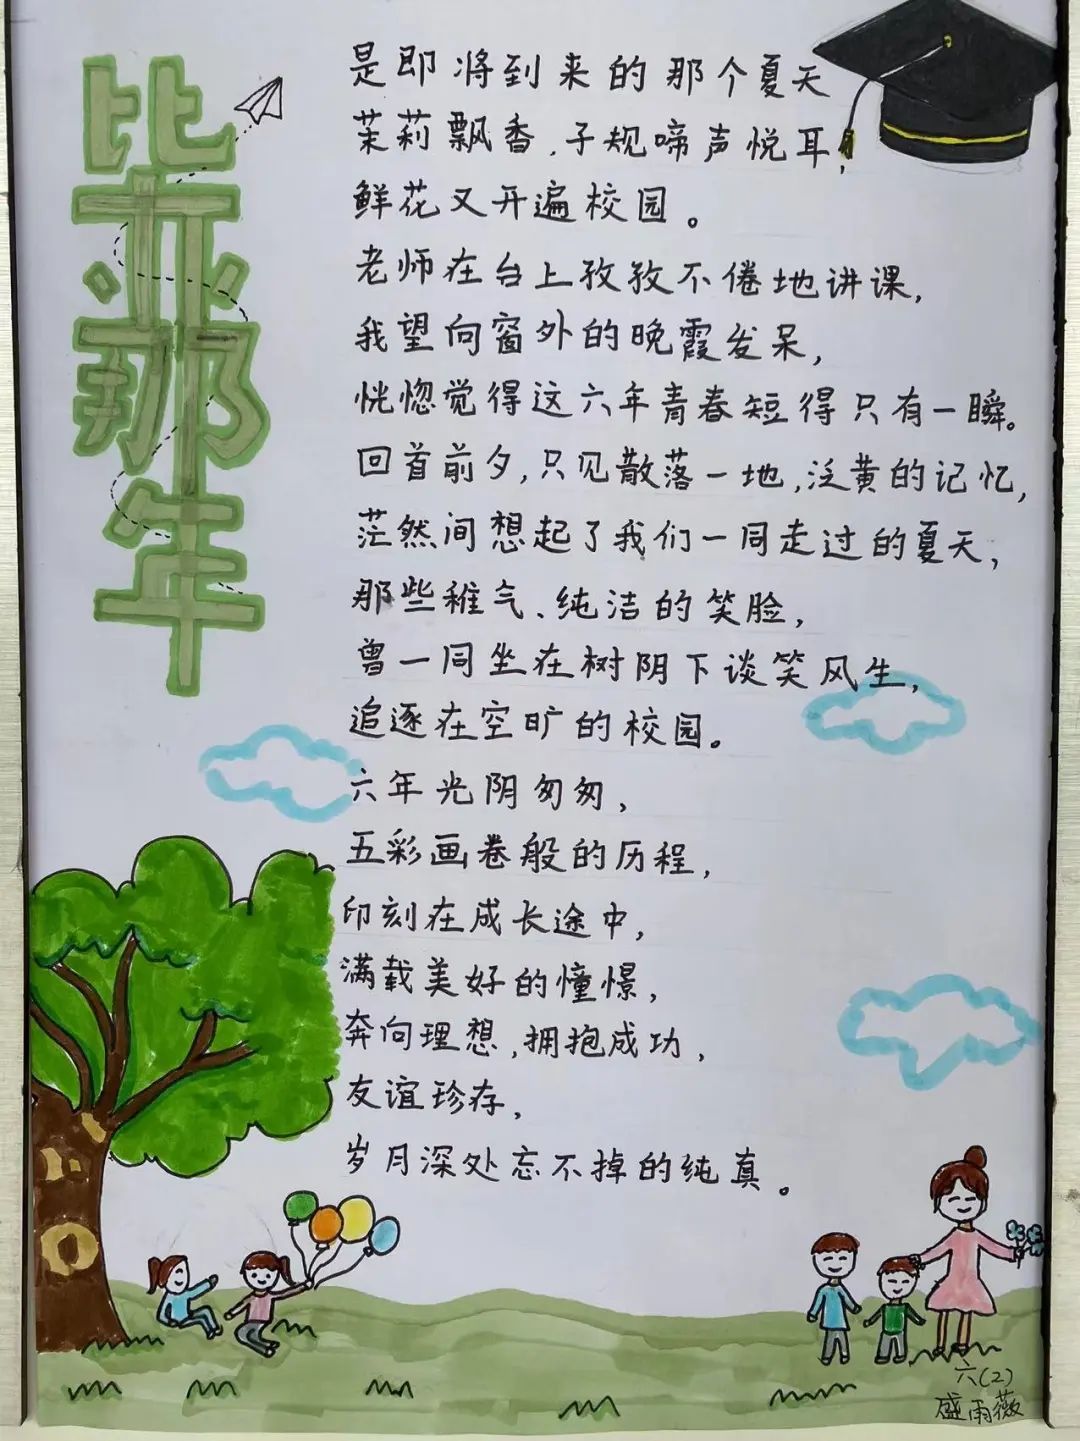 毕业那年
是即将到来的那个夏天
茉莉飘香,子规啼声悦耳,
鲜花又开遍校园。
老师在台上孜孜不倦地讲课,
我望向窗外的晚霞发呆,
恍惚觉得这六年青春短得只有一瞬。
回首前夕,只见散落一地,泛黄的记忆,
茫然间想起了我们一同走过的夏天,
那些稚气、纯洁的笑脸,
曾一同坐在树阴下谈笑风生,
追逐在空旷的校园。
六年光阴匆匆,
五彩画卷般的历程,
印刻在成长途中,
满载美好的憧憬,
奔向理想,拥抱成功,
友谊珍存,
岁月深处忘不掉的纯真。
六(2)
盛雨薇